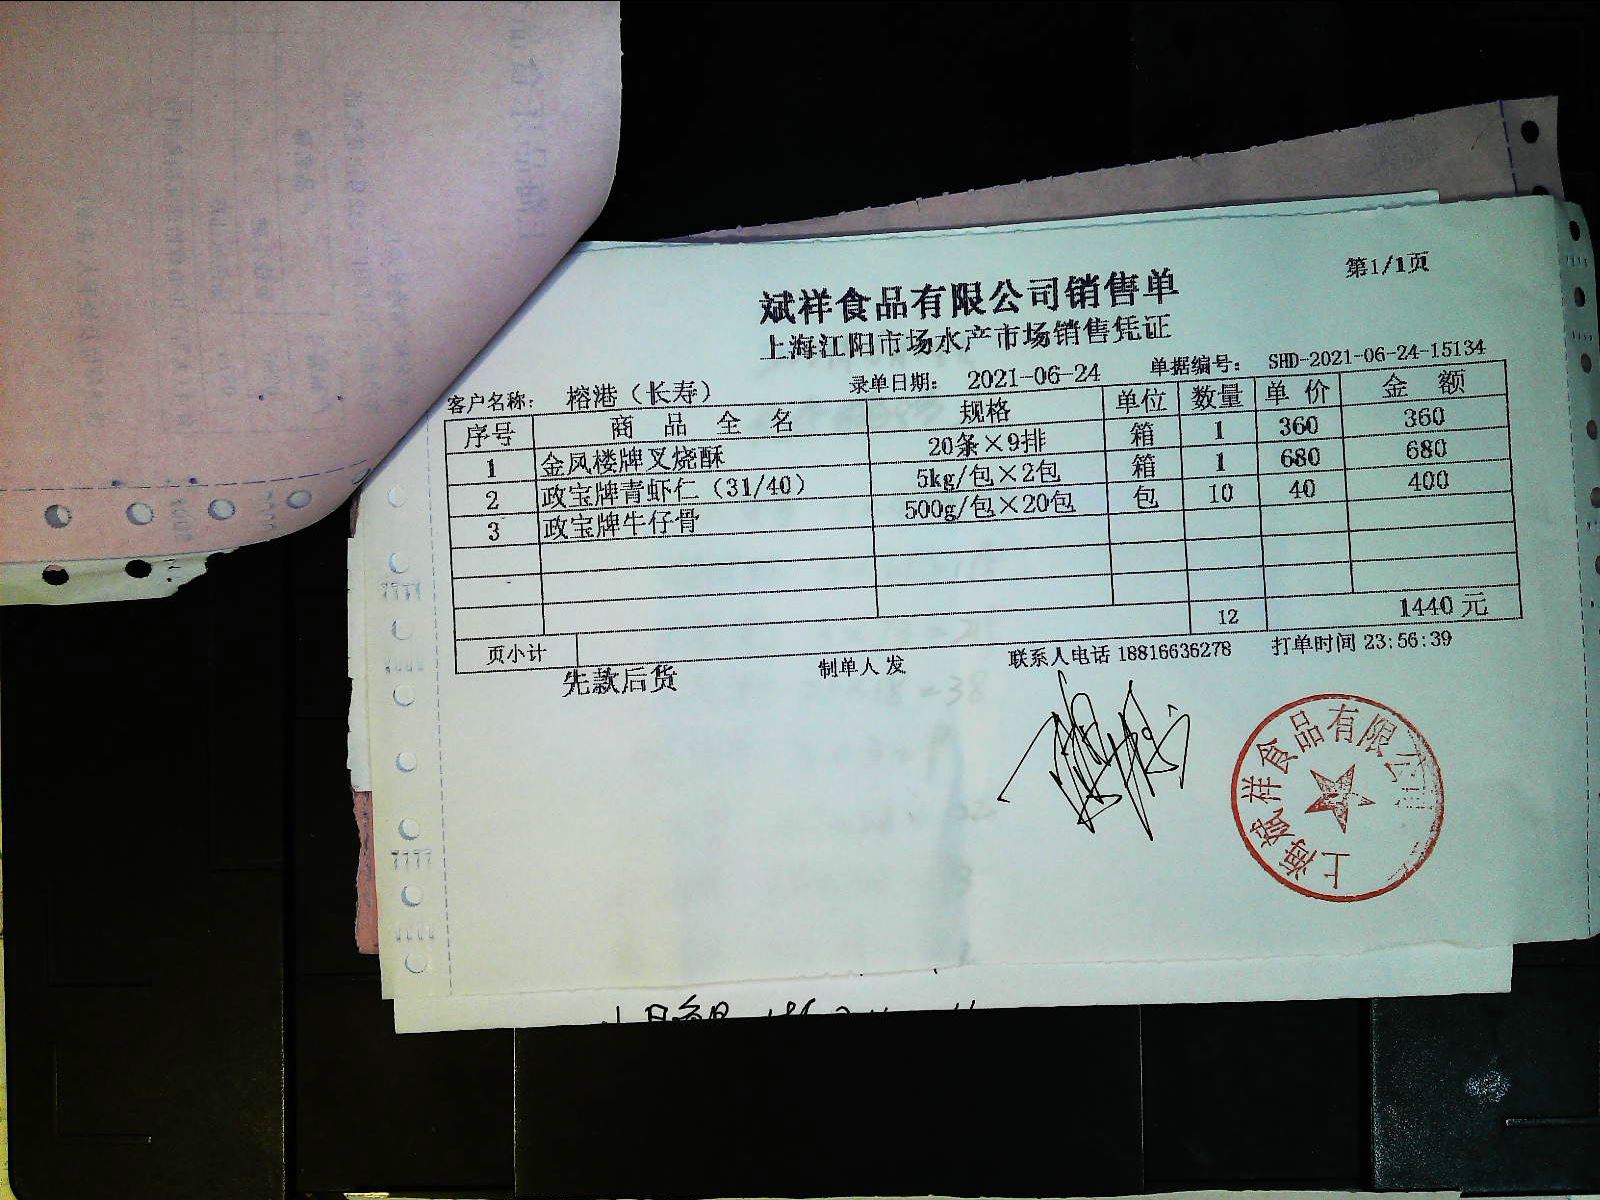 第1/1页
斌祥食品有限公司销售单
上海江阳市场水产市场销售凭证
客户名称： 榕港（长寿） 录单日期： 2021-06-24 单据编号： SHD-2021-06-24-15134
序号 商 品 全 名 规格 单位 数量 单 价 金 额
1 金凤楼牌叉烧酥 20条×9排 箱 1 360 360
2 政宝牌青虾仁（31/40） 5kg/包×2包 箱 1 680 680
3 政宝牌牛仔骨 500g/包×20包 包 10 40 400
页小计 12 1440 元
先款后货 制单人 发 联系人电话 18816636278 打单时间 23:56:39
上海斌祥食品有限公司